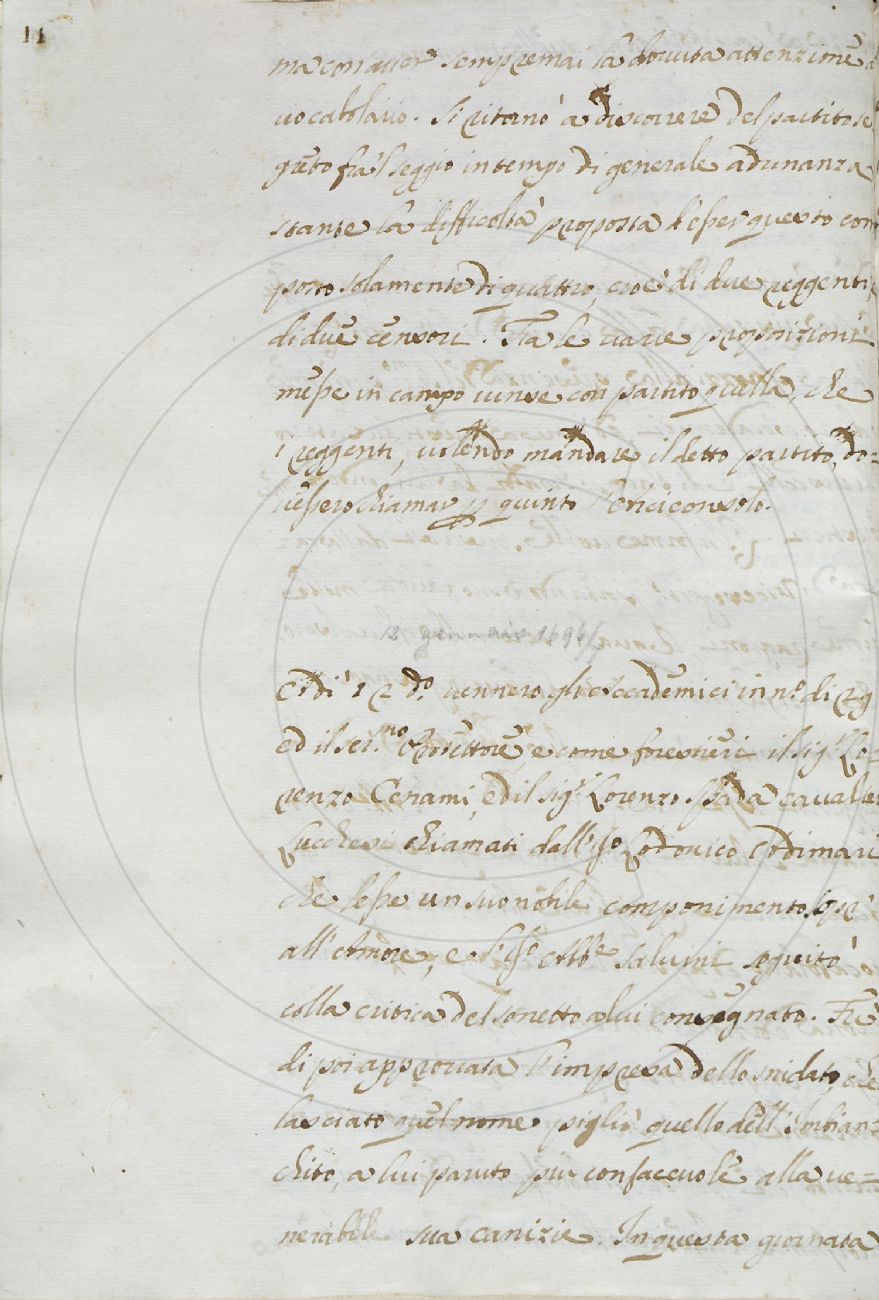 11
ma con aver sempremai la dovuta attenzione a
vocabolario. Si ritornò a discorrere del partito se
greto fra'l seggio in tempo di generale adunanza
stante la difficoltà proposta d'esser questo com
posto solamente di quattro, cioè di due reggenti,
di due censori. Fra le varie proposizioni
messe in campo vinse con partito quella, che
i reggenti, volendo mandare il detto partito, do=
vessero chiamar p quinto l'Arciconsolo.
12 gennaio 1696/
Adì 12 dº. vennero gli Accademici in nº. di 29
ed il ser.mo Protettore, e come forestieri il sigr. Lo=
renzo Cenami, ed il sigr. Lorenzo Spada cavalie
Lucchesi chiamati dall' Lodovico Adimari
che lesse un suo nobile componimento sopr
all'Amore, e l' Abbe. Salvini seguitò
colla critica del sonetto a lui consegnato. Fù
di poi approvata l'impresa dello snidato, che
lasciato quel nome pigliò quello dell'Imbian=
chito, a lui paruto più confacevole alla ve=
nerabile sua canizie. In questa giornata